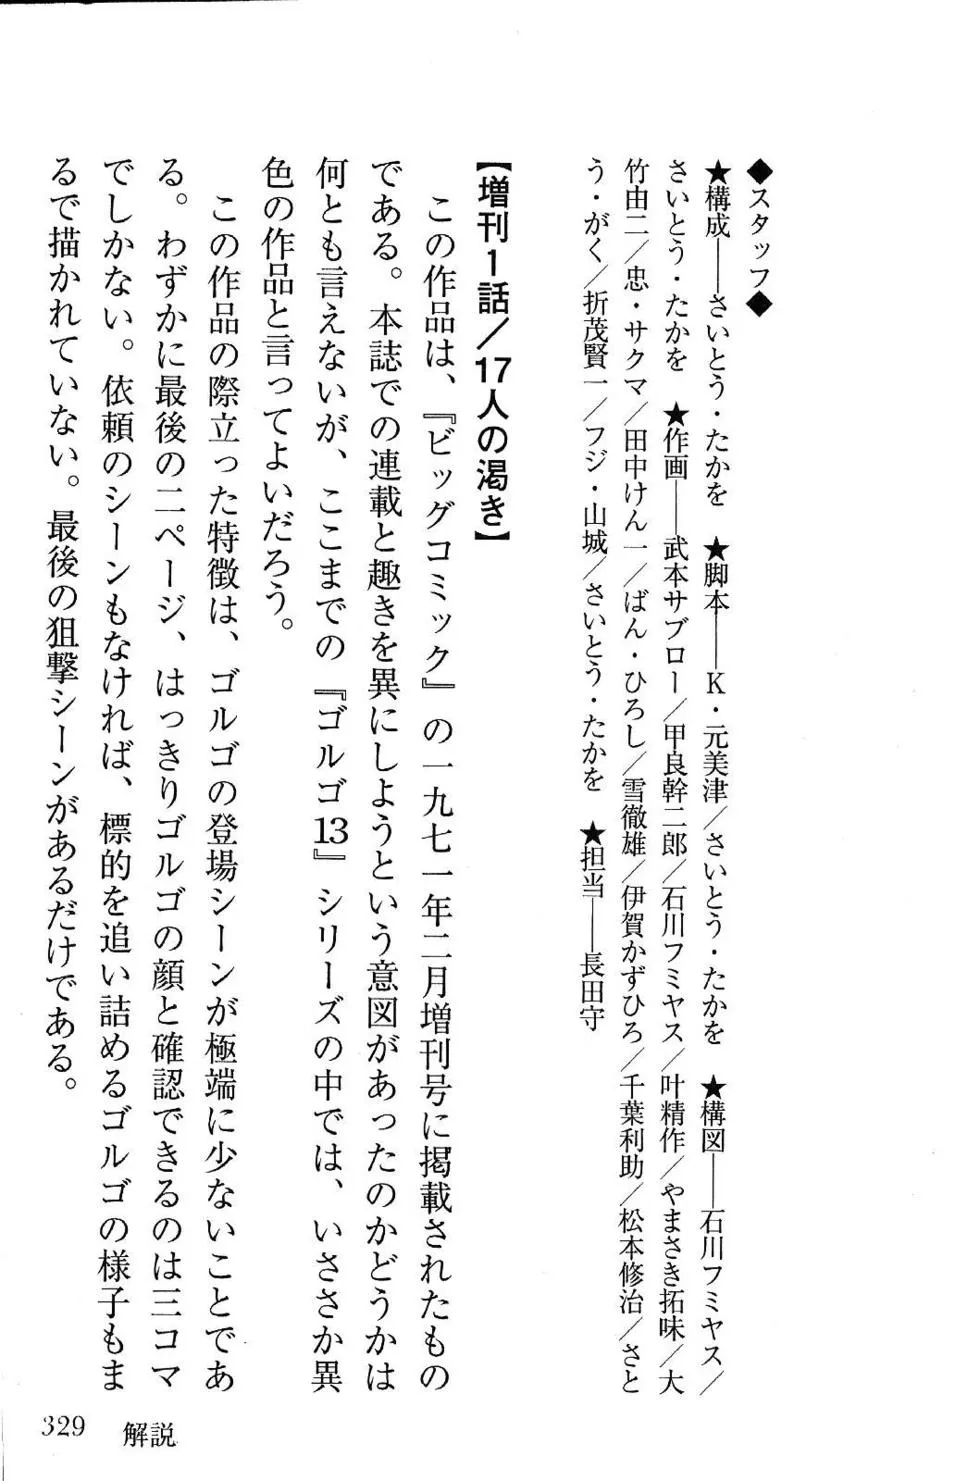 ◆スタッフ◆
★構成――さいとう・たかを　★脚本――K・元美津／さいとう・たかを　★構図――石川フミヤス／
さいとう・たかを　★作画――武本サブロー／甲良幹二郎／石川フミヤス／叶精作／やまさき拓味／大
竹由二／忠・サクマ／田中けん一／ばん・ひろし／雪徹雄／伊賀かずひろ／千葉利助／松本修治／さと
う・がく／折茂賢一／フジ・山城／さいとう・たかを　★担当――長田守
【増刊1話／17人の渇き】
　この作品は、『ビッグコミック』の一九七一年二月増刊号に掲載されたもの
である。本誌での連載と趣きを異にしようという意図があったのかどうかは
何とも言えないが、ここまでの『ゴルゴ13』シリーズの中では、いささか異
色の作品と言ってよいだろう。
　この作品の際立った特徴は、ゴルゴの登場シーンが極端に少ないことであ
る。わずかに最後の二ページ、はっきりゴルゴの顔と確認できるのは三コマ
でしかない。依頼のシーンもなければ、標的を追い詰めるゴルゴの様子もま
るで描かれていない。最後の狙撃シーンがあるだけである。
329　解説